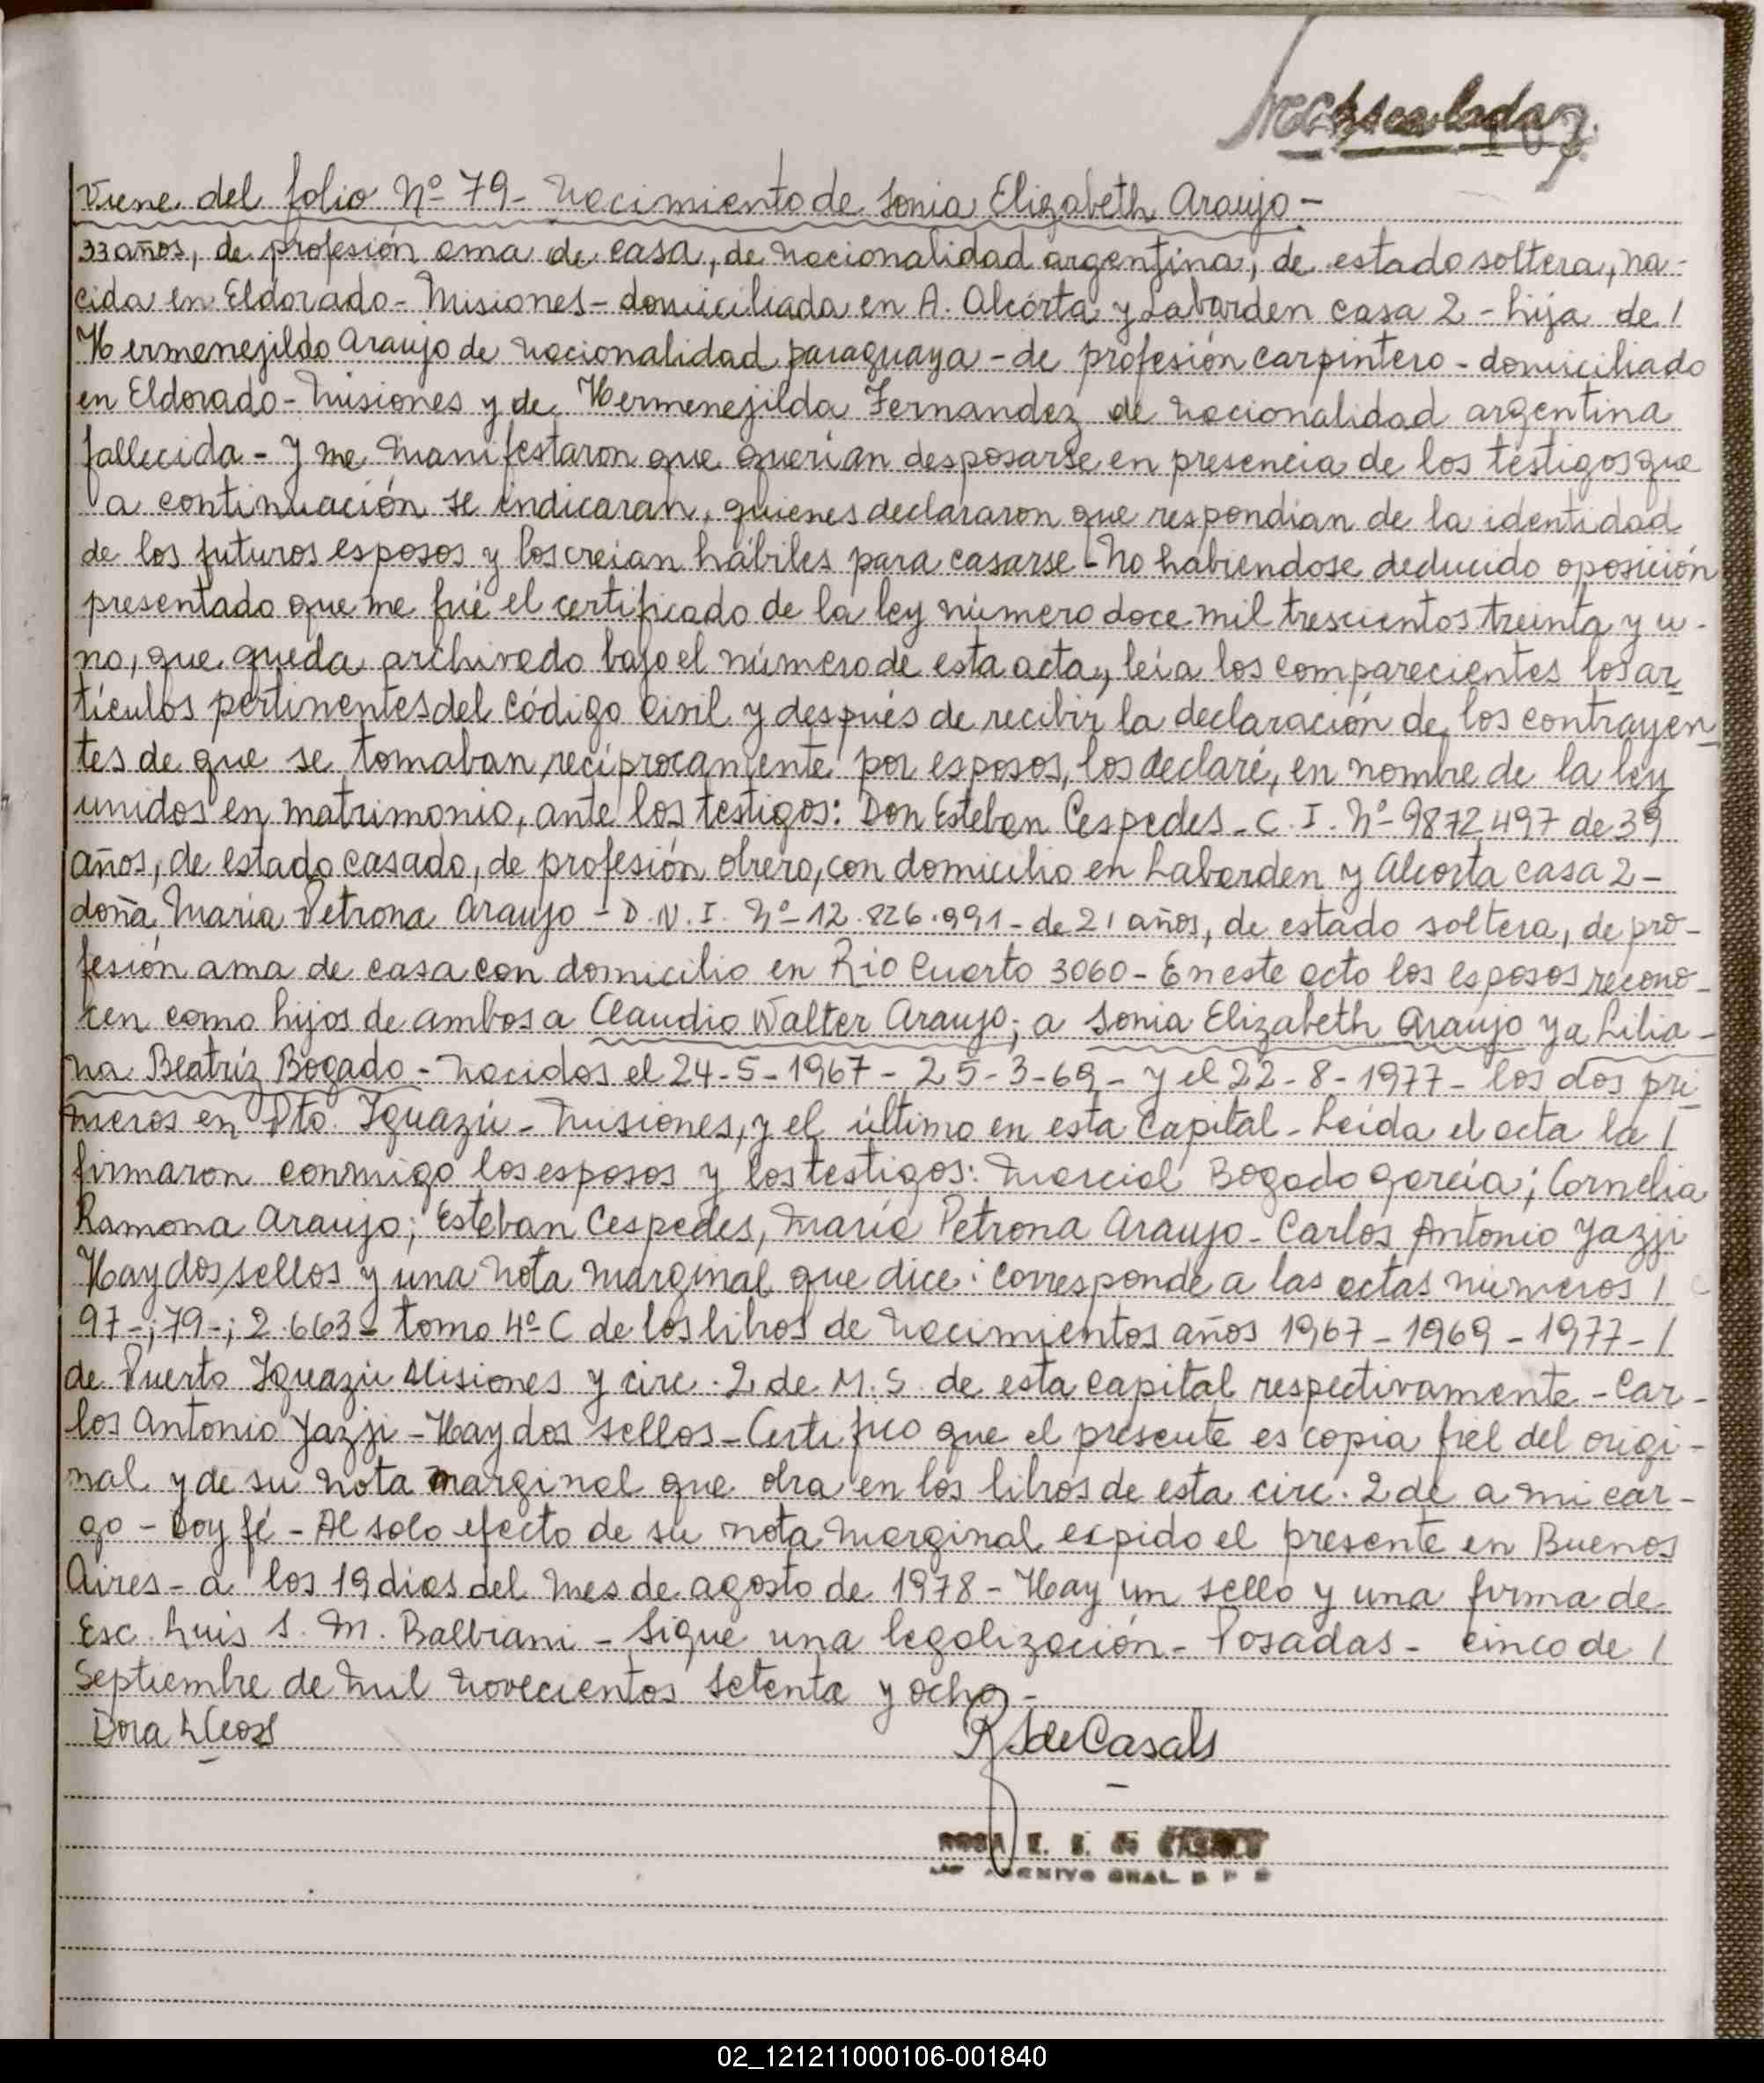 Viene del folio Nº 79 - Nacimiento de Sonia Elizabeth Araujo -
33 años, de profesión ama de casa, de nacionalidad argentina, de estado soltera, na-
cida en Eldorado - Misiones - domiciliada en A. Alcorta y Labarden casa 2 - hija de /
Hermenejildo Araujo de nacionalidad paraguaya - de profesión carpintero - domiciliado
en Eldorado - Misiones y de Hermenejilda Fernandez de nacionalidad argentina
fallecida - y me manifestaron que querían desposarse en presencia de los testigos que
a continuación se indicaran, quienes declararon que respondian de la identidad
de los futuros esposos y los creian hábiles para casarse - No habiendose deducido oposición
presentado que me fué el certificado de la ley número doce mil trescientos treinta y u-
no, que queda archivado bajo el número de esta acta, leí a los comparecientes los ar
tículos pertinentes del código civil y después de recibir la declaración de los contrayen
tes de que se tomaban recíprocamente por esposos, los declaré, en nombre de la ley
unidos en matrimonio, ante los testigos: Don Esteban Cespedes - C. I. Nº 9872497 de 39
años, de estado casado, de profesión obrero, con domicilio en Labarden y Alcorta casa 2 -
doña Maria Petrona Araujo - D. N. I. Nº 12.826.991 - de 21 años, de estado soltera, de pro-
fesión ama de casa con domicilio en Rio Cuarto 3060 - En este acto los esposos recono-
cen como hijos de ambos a Claudio Walter Araujo; a Sonia Elizabeth Araujo y a Lilia-
na Beatríz Bogado - Nacidos el 24-5-1967 - 25-3-69 - y el 22-8-1977 - los dos pri
meros en Pto. Iguazú - Misiones, y el último en esta Capital - Leída el acta la /
firmaron conmigo los esposos y los testigos: Marcial Bogado García; Cornelia
Ramona Araujo; Esteban Cespedes, María Petrona Araujo - Carlos Antonio Yazji
Hay dos sellos y una nota marginal que dice: corresponde a las actas números /
97-; 79-; 2.663 - tomo 4º C de los libros de nacimientos años 1967 - 1969 - 1977 - /
de Puerto Iguazú Misiones y circ. 2 de M. S. de esta capital respectivamente - Car-
los Antonio Yazji - Hay dos sellos - Certifico que el presente es copia fiel del origi-
nal y de su nota marginal que obra en los libros de esta circ. 2 de a mi car-
go - Doy fé - Al solo efecto de su nota marginal expido el presente en Buenos
Aires - a los 19 dias del mes de agosto de 1978 - Hay un sello y una firma de
Esc. Luis S. M. Balbiani - Sigue una legalización - Posadas - cinco de /
Septiembre de mil novecientos setenta y ocho -
Dora
R S de Casals
ROSA E. S. de CASALS
ARCHIVO GRAL
02_121211000106-001840